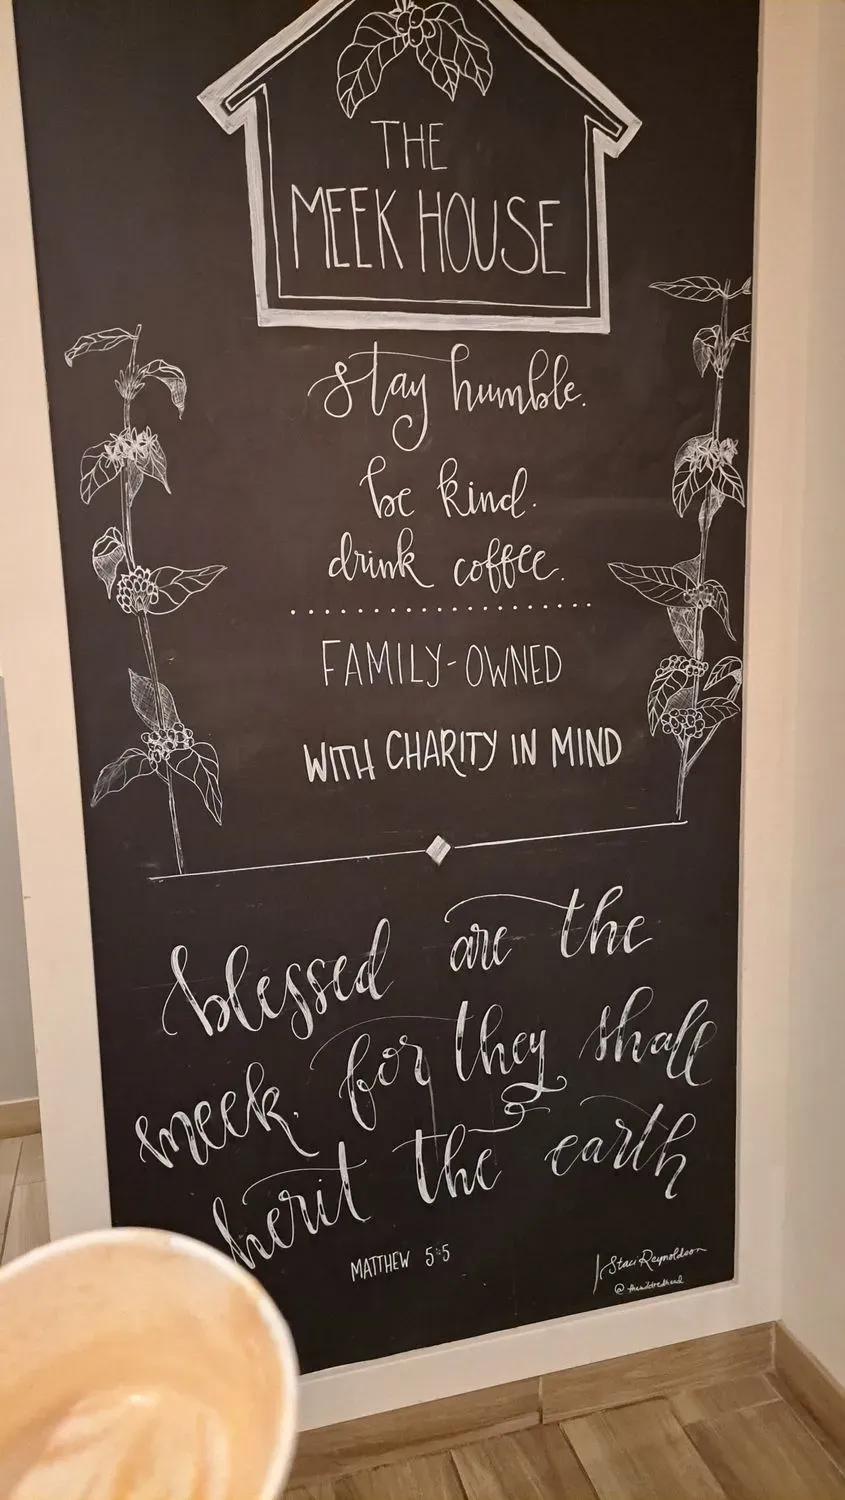 THE
MEEK HOUSE
stay humble.
be kind.
drink coffee.
FAMILY-OWNED
WITH CHARITY IN MIND
blessed are the
meek. for they shall
herit the earth
MATTHEW 5:5
Staci Reynoldson